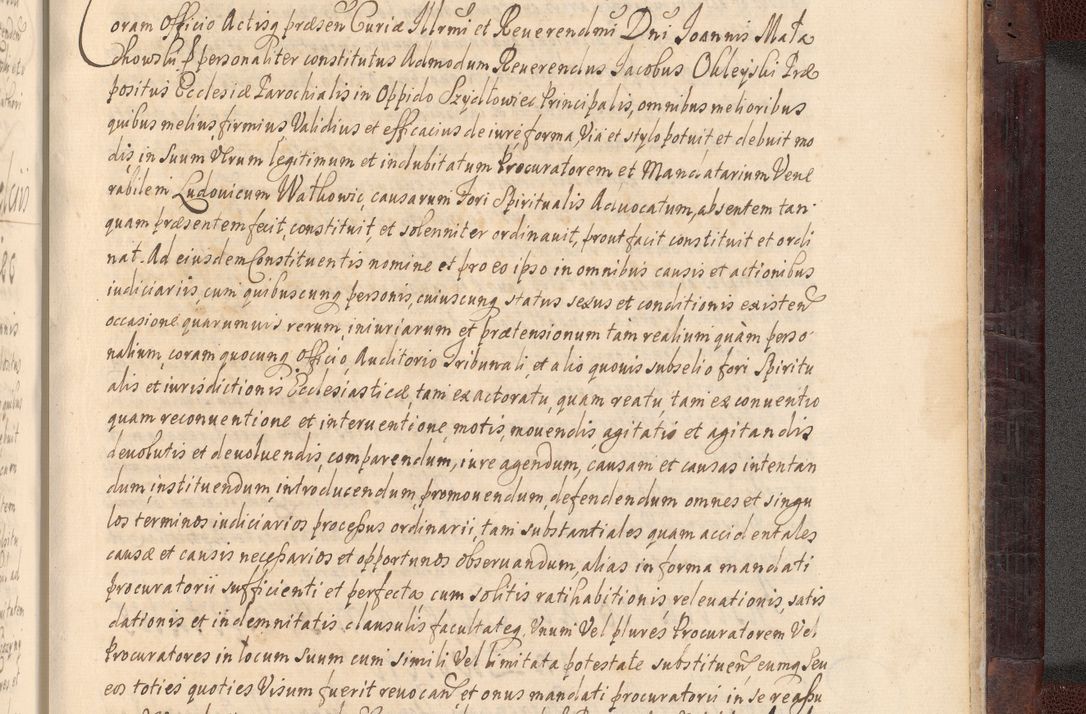 Coram Officio Actisq̃ præsen̄ Curiæ Illrmi et Reuerendmi Dni Joannis Mała
chowski p personaliter constitutus Admodum Reuerendus Jacobus Okleyski Præ
positus Ecclesiæ Parochialis in Oppido Szydłowiec Principalis, omnibus melioribus
quibus melius, firmius, Validius et efficacius de iure, forma, Via et stylo potuit et debuit mo
dis, in suum Verum legitimum et indubitatum Procuratorem et Mandatarium Vene
rabilem Ludouicum Wathowic, causarum Fori Spiritualis Aduocatum, absentem tan
quam præsentem fecit, constituit, et solenniter ordinauit, prout facit constituit et ordi
nat. Ad eiusdem Constituentis nomine et pro eo ipso in omnibus causis et actionibus
iudiciariis, cum quibuscunq̃ personis, cuiuscunq̃ status sexus et conditionis existen̄
occasione quarumuis rerum, iniuriarum et prætensionum tam realium quàm perso
nalium, coram quocunq̃ Officio, Auditorio Tribunali, et alio quouis subselio fori Spiritu
alis et iurisdictionis Ecclesiasticæ, tam ex actoratu, quam reatu, tam ex conuentio
quam reconuentione et interuentione, motis, mouendis, agitatis et agitandis
deuolutis et deuoluendis, comparendum, iure agendum, causam et causas intentan
dum, instituendum, introducendum, promouendum, defendendum omnes et singu
los terminos iudiciarios processus ordinarii, tam substantiales quam accidentales
causæ et causis necessarios et opportunos obseruandum, alias in forma mandati
procuratorii sufficienti et perfecta, cum solitis ratihabitionis releuationis, satis
dationis et indemnitatis clausulis facultateq̃. Vnum Vel plures Procuratorem Vel
Procuratores in locum suum cum simili Vel limitata potestate substituen̄ eumq̃ seu
eos toties quoties Visum fuerit reuocan̄ et onus mandati procuratorii in se reassu